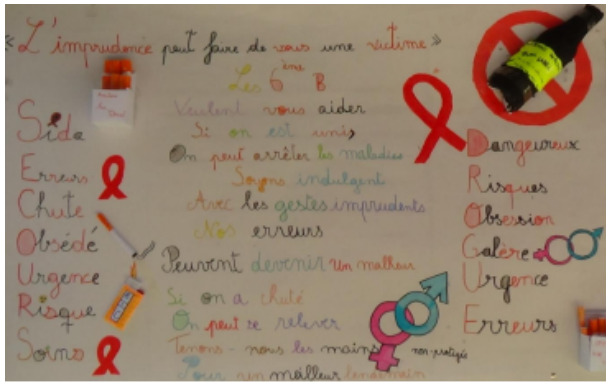 « L'imprudence peut faire de vous une victime »
Les 6ème B
Veulent vous aider
Si on est unis
On peut arrêter les maladies
Soyons indulgent
Avec les gestes imprudents
Nos erreurs
Peuvent devenir un malheur
Si on a chuté
On peut se relever
Tenons-nous les mains
Pour un meilleur lendemain
Sida
Erreurs
Chute
Obsédé
Urgence
Risque
Soins
Dangeureux
Risques
Obsession
Galère
Urgence
Erreurs
non-protégés